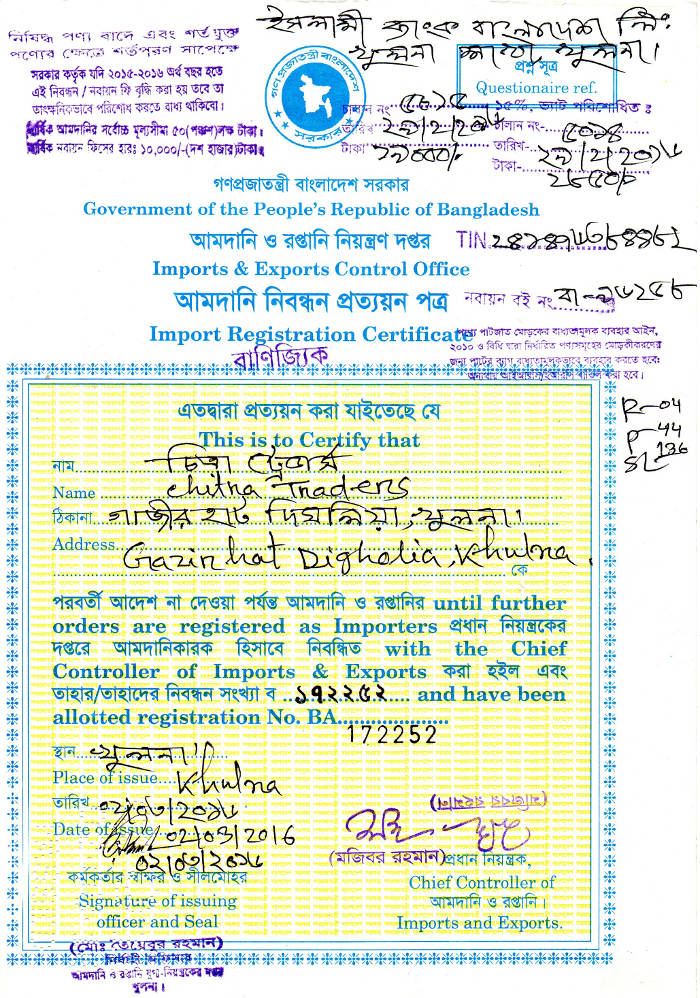 ইসলামী ব্যাংক বাংলাদেশ লিঃ
খুলনা শাখা, খুলনা।
নিষিদ্ধ পণ্য বাদে এবং শর্ত যুক্ত
পণ্যের ক্ষেত্রে শর্তপূরণ সাপেক্ষে
সরকার কর্তৃক যদি ২০১৫-২০১৬ অর্থ বছর হতে
এই নিবন্ধন / নবায়ন ফি বৃদ্ধি করা হয় তবে তা
তাৎক্ষনিকভাবে পরিশোধ করতে বাধ্য থাকিবো।
বার্ষিক আমদানির সর্বোচ্চ মূল্যসীমা ৫০(পঞ্চাশ)লক্ষ টাকা।
বার্ষিক নবায়ন ফিসের হারঃ ১০,০০০/-(দশ হাজার)টাকা।
গণপ্রজাতন্ত্রী বাংলাদেশ
সরকার
প্রশ্ন সূত্র
Questionaire ref.
চালান নং
তারিখ
টাকা
১৫% ভ্যাট পরিশোধিত ঃ
চালান নং-
তারিখ-
টাকা-
গণপ্রজাতন্ত্রী বাংলাদেশ সরকার
Government of the People's Republic of Bangladesh
আমদানি ও রপ্তানি নিয়ন্ত্রণ দপ্তর
TIN
Imports & Exports Control Office
আমদানি নিবন্ধন প্রত্যয়ন পত্র
নবায়ন বই নং
Import Registration Certificate
পণ্যে পাটজাত মোড়কের বাধ্যতামূলক ব্যবহার আইন,
২০১০ ও বিধি দ্বারা নির্ধারিত পণ্যসমূহের মোড়কীকরণের
জন্য পাটের ব্যাগ বাধ্যতামূলকভাবে ব্যবহার করতে হবে;
বাণিজ্যিক
R-04
P-44
SL-136
এতদ্বারা প্রত্যয়ন করা যাইতেছে যে
This is to Certify that
নাম চিত্রা ট্রেডার্স
Name Chitra Traders
ঠিকানা গাজীর হাট দিঘলিয়া, খুলনা।
Address Gazir hat Dighalia, Khulna.
কে
পরবর্তী আদেশ না দেওয়া পর্যন্ত আমদানি ও রপ্তানির until further
orders are registered as Importers প্রধান নিয়ন্ত্রকের
দপ্তরে আমদানিকারক হিসাবে নিবন্ধিত with the Chief
Controller of Imports & Exports করা হইল এবং
তাহার/তাহাদের নিবন্ধন সংখ্যা ব ..১৭২২৫২.... and have been
allotted registration No. BA....................
172252
স্থান খুলনা।
Place of issue Khulna
তারিখ ০২/০৩/২০১৬
Date of issue 02/03/2016
০২/০৩/২০১৬
কর্মকর্তার স্বাক্ষর ও সীলমোহর
Signature of issuing
officer and Seal
(মজিবর রহমান)
(মজিবর রহমান) প্রধান নিয়ন্ত্রক,
Chief Controller of
আমদানি ও রপ্তানি।
Imports and Exports.
(মোঃ তৈয়েবুর রহমান)
নির্বাহী অফিসার
আমদানি ও রপ্তানি যুগ্ম-নিয়ন্ত্রকের দপ্তর
খুলনা।